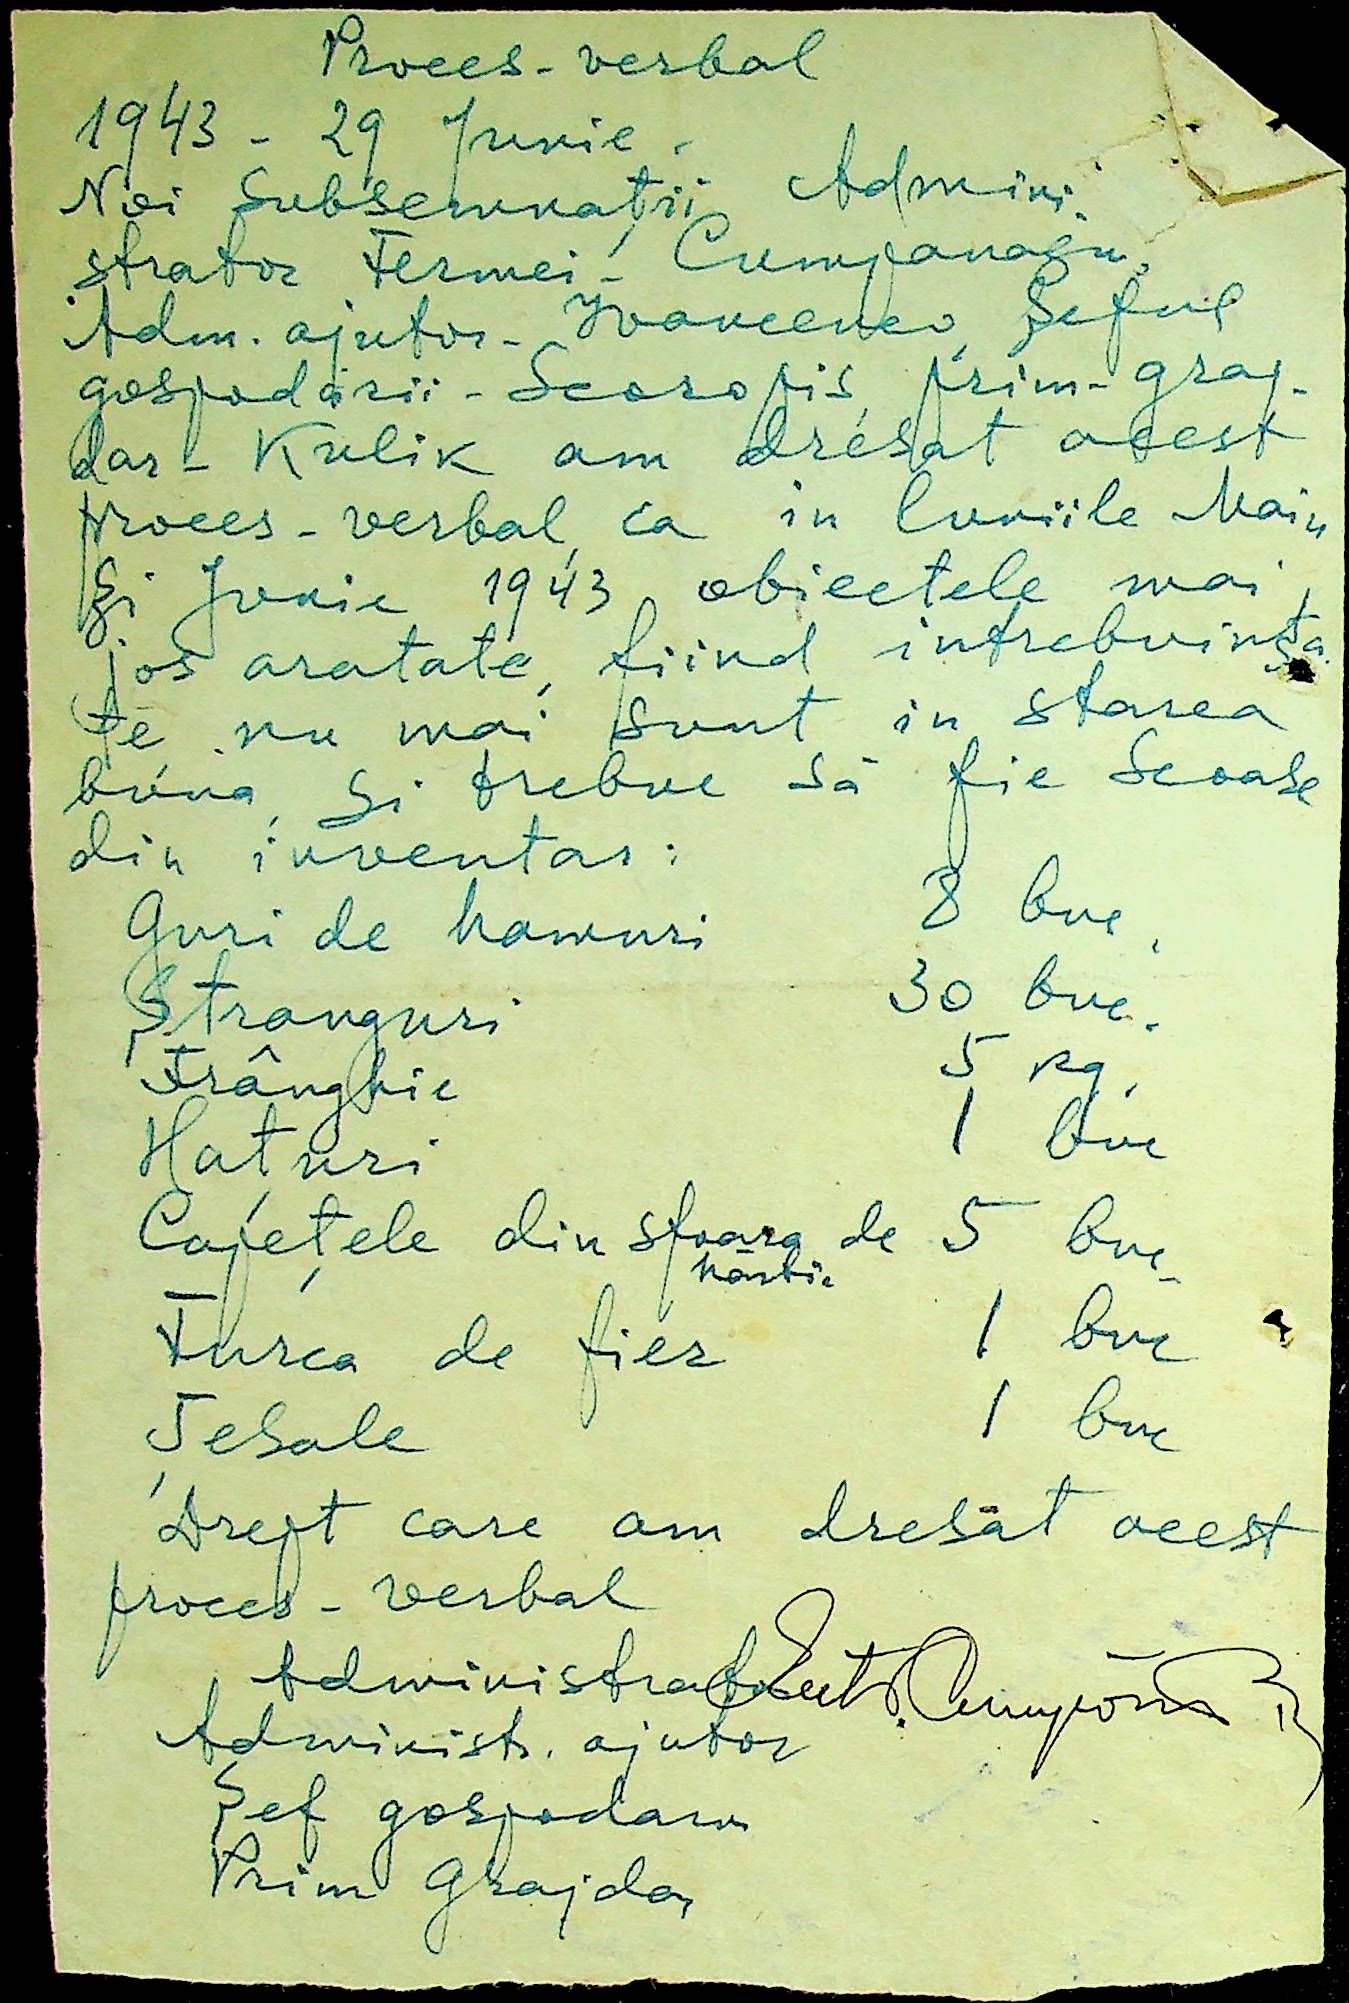 Proces-verbal
1943 - 29 Junie.
Noi Subsemnnații Admini-
strator Fermei - Cumpanașu,
Adm. ajutor - Ivancenco, Șeful
gospodării - Scoropis, prim-graj-
dar - Kulik am dresat acest
proces-verbal, ca in luniile Maiu
și Junie 1943 obiectele mai
jos aratate, fiind intrebuința
te nu mai sunt in starea
buna, și trebue să fie scoase
din inventar:
Guri de hamuri 8 buc.
Ștranguri 30 buc.
Frânghie 5 kg.
Hațuri 1 buc
Capețele din sfoara de 5 buc.
hârtie
Furca de fier 1 buc
Țesale 1 buc
Drept care am dresat acest
proces-verbal
Administrator
Administr. ajutor
Șef gospodar
Prim Grajdar